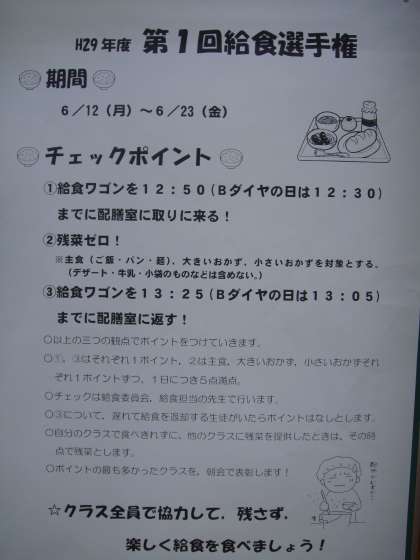 H29年度 第1回給食選手権
期間
6/12(月)~6/23(金)
チェックポイント
①給食ワゴンを12:50(Bダイヤの日は12:30)
までに配膳室に取りに来る!
②残菜ゼロ!
※主食(ご飯・パン・麺)、大きいおかず、小さいおかずを対象とする。
(デザート・牛乳・小袋のものなどは含めない。)
③給食ワゴンを13:25(Bダイヤの日は13:05)
までに配膳室に返す!
○以上の三つの観点でポイントをつけていきます。
○①、③はそれぞれ1ポイント、②は主食、大きいおかず、小さいおかずそれ
ぞれ1ポイントずつ、1日につき5点満点。
○チェックは給食委員会、給食担当の先生で行います。
○③について、遅れて給食を返却する生徒がいたらポイントはなしとします。
○自分のクラスで食べきれずに、他のクラスに残菜を提供したときは、その時
点で残菜とします。
○ポイントの最も多かったクラスを、朝会で表彰します!
☆クラス全員で協力して、残さず、
楽しく給食を食べましょう!